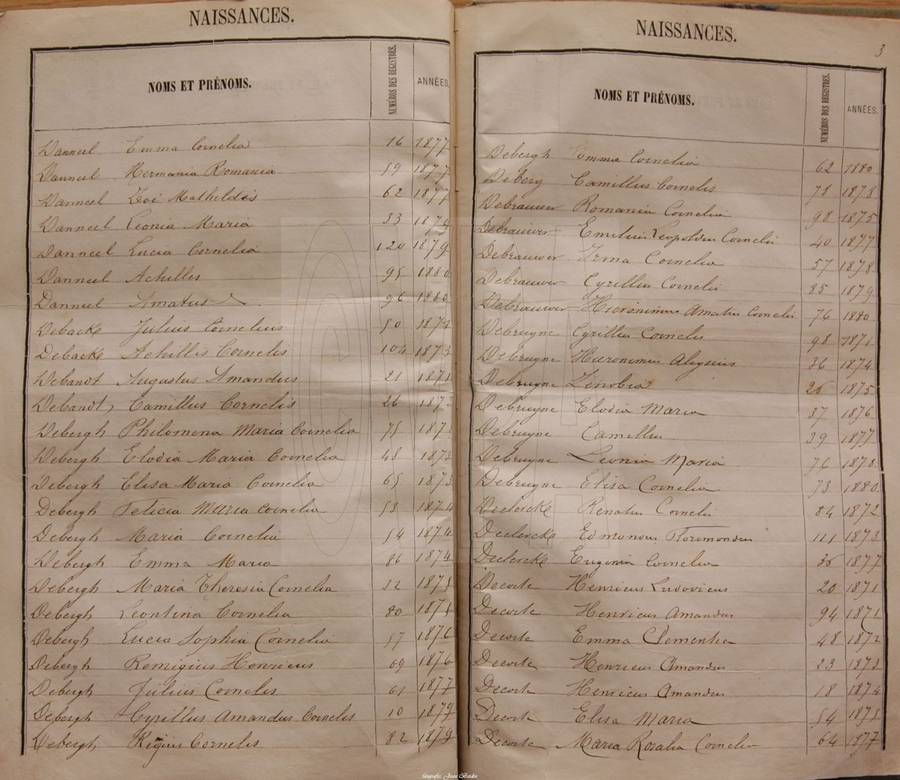 NAISSANCES.
NOMS ET PRÉNOMS. NUMÉROS DES REGISTRES. ANNÉES.
Danneel Emma Cornelia 16 1877
Danneel Hermania Romania 59 1877
Danneel Zoë Mathildis 62 1877
Danneel Leonia Maria 33 1879
Danneel Lucia Cornelia 120 1879
Danneel Achilles 95 1880
Danneel Amatus 96 1880
Debacke Julius Cornelius 50 1872
Debacke Achillis Cornelis 104 1873
Debandt Augustus Amandus 21 1871
Debandt Camillus Cornelis 26
Debergh Philomena Maria Cornelia 75
Debergh Elodia Maria Cornelia 48 1873
Debergh Elisa Maria Cornelia 65 1873
Debergh Felicia Maria Cornelia 53 1874
Debergh Maria Cornelia 54 1874
Debergh Emma Maria 86 1874
Debergh Maria Theresia Cornelia 52 1875
Debergh Leontina Cornelia 80 1875
Debergh Lucia Sophia Cornelia 57 1876
Debergh Remigius Henricus 69 1876
Debergh Julius Cornelis 61 1877
Debergh Cyrillus Amandus Cornelis 10 1879
Debergh Regius Cornelis 82 1879
NAISSANCES.
3
NOMS ET PRÉNOMS. NUMÉROS DES REGISTRES. ANNÉES.
Debergh Emma Cornelia 62 1880
Deberg Camillus Cornelis 78 1878
Debrauwer Romania Cornelia 98 1875
Debrauwer Emilius Leopoldus Cornelis 40 1877
Debrauwer Irma Cornelia 57 1878
Debrauwer Cyrillus Cornelis 85 1879
Debrauwer Hieronimus Amatus Cornelis 76 1880
Debruyne Cyrillus Cornelis 98 1871
Debruyne Hieronimus Aloysius 36 1874
Debruyne Zenobia 26 1875
Debruyne Elodia Maria 87 1876
Debruyne Camillus 39 1877
Debruyne Leonia Maria 76 1878
Debruyne Elisa Cornelia 73 1880
Declercke Renatus Cornelis 84 1872
Declercke Edmondus Florimondus 111 1873
Declercke Eugenia Cornelia 36 1877
Decorte Henricus Ludovicus 20 1871
Decorte Henricus Amandus 94 1871
Decorte Emma Clementia 48 1872
Decorte Henricus Amandus 23 1873
Decorte Henricus Amandus 18 1874
Decorte Elisa Maria 54 1875
Decorte Maria Rosalia Cornelia 64 1877